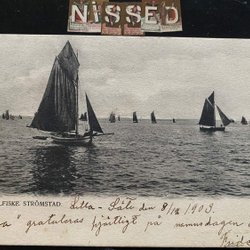 NISSED
LFISKE. STRÖMSTAD.
Lilla-Såte den 8/12 1903.
a" gratuleras hjärtligt på namnsdagen a